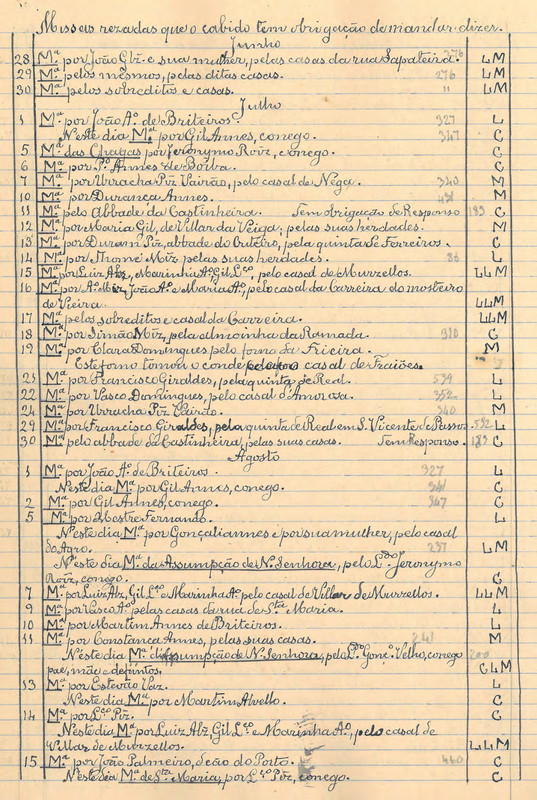 Missas rezadas que o cabido tem obrigação de mandar dizer.
Junho
28 Mª. por João Glz. e sua mulher, pelas casas da rua Sapateira. 276 LM
29 Mª. pelos mesmos, pelas ditas casas. 276 LM
30 Mª. pelos sobreditos e casas. " LM
Julho
1 Mª. por João Aº. de Briteiros. 327 L
Neste dia Mª. por Gil Annes, conego. 347 C
5 Mª. das Chagas por Jeronymo Roiz, conego. C
6 Mª. por Pº. Annes de Borba. C
7 Mª. por Urracha Piz Vairão, pelo casal de Nega. 340 M
10 Mª. por Durança Annes. M
11 Mª. pelo Abbade da Castinheira. Tem obrigação de Responso 193 C
12 Mª. por Maria Gil, de Villar da Veiga; pelas suas herdades. M
13 Mª. por Duram Piz, abbade do Outeiro, pela quinta de Ferreiros. C
14 Mª. por Thomé Miz pelas suas herdades. 86 L
15 Mª. por Luiz Alz, Marinha Aº, Gil Lço, pelo casal de Murzellos. LLM
16 Mª. por Aº. Miz, João Aº. e Maria Aº, pelo casal da Carreira do mosteiro
de Vieira. LLM
17 Mª. pelos sobreditos e casal da Carreira. LLM
18 Mª. por Simão Miz, pela almoinha da Ramada. 320 C
19 Mª. por Clara Domingues pelo forno da Fricira. M
Este forno tomou o conde pelo casal de Fraiões.
21 Mª. por Francisco Giraldes, pela quinta de Real. 539 L
22 Mª. por Vasco Domingues, pelo casal d'Amorosa. 352 L
24 Mª. por Urracha Piz Vairão. 340 M
29 Mª. por Francisco Giraldes, pela quinta de Real em S. Vicente de Passos. 532 L
30 Mª. pelo abbade da Castinheira, pelas suas casas. Tem Responso. 183 C
Agosto
1 Mª. por João Aº. de Briteiros. 327 L
Neste dia Mª. por Gil Annes, conego. C
2 Mª. por Gil Annes, conego. 347 C
5 Mª. por Mestre Fernando. L
Neste dia Mª. por Gonçaliannes e por sua mulher, pelo casal
do Agro. 237 LM
Neste dia Mª. da Assumpção de Nª. Senhora, pelo Ldo. Jeronymo
Roiz, conego. C
7 Mª. por Luiz Alz, Gil Lço e Marinha Aº. pelo casal de Villar de Murzellos. LLM
9 Mª. por Vasco Aº. pelas casas da rua de Sta. Maria. L
10 Mª. por Martim Annes de Briteiros. L
11 Mª. por Constança Annes, pelas suas casas. 241 M
Neste dia Mª. d'Assumpção de Nª. Senhora, pelo Ldo. Gonço. Velho, conego 200
pae, mãe e defuntos. CLM
13 Mª. por Estevão Vaz. L
Neste dia Mª. por Martim Alvello. C
14 Mª. por Lço. Piz. C
Neste dia Mª. por Luiz Alz, Gil Lço. e Marinha Aº., pelo casal de
Villar de Murzellos. LLM
15 Mª. por João Palmeiro, deão do Porto. 460 C
Neste dia Mª. de Sta. Maria, por Lço Piz, conego. C